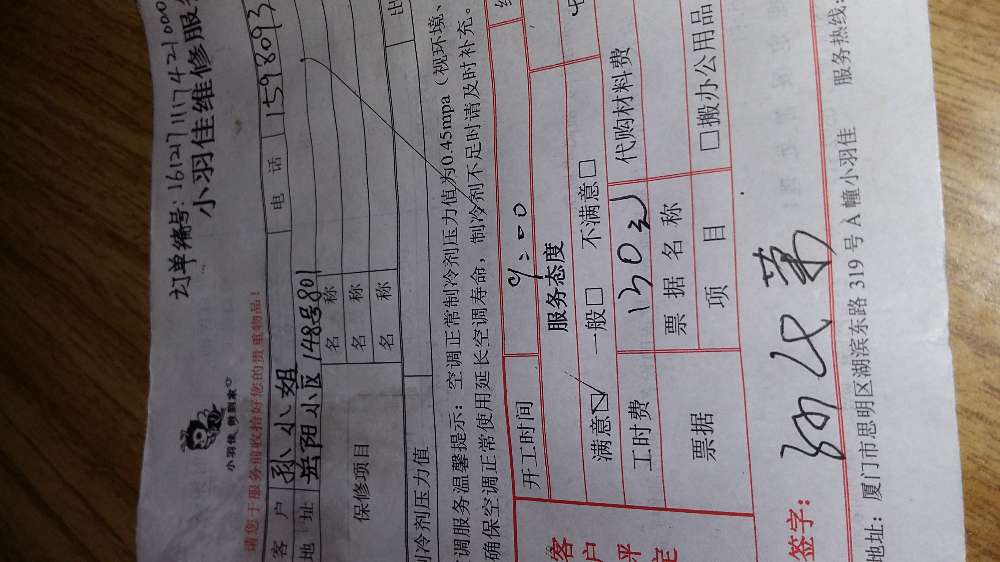 订单编号:161217111742100
小羽佳维修服
小羽佳 做到家
请您于服务前收拾好您的贵重物品!
客户 孙小姐 电话 1598093
地址 岳阳小区148号801
保修项目 名称
名称
名称
制冷剂压力值 出
调服务温馨提示:空调正常制冷剂压力值为0.45mpa(视环境、
确保空调正常使用延长空调寿命,制冷剂不足时请及时补充。
开工时间 9:00
客户评定 服务态度
满意☑ 一般□ 不满意□
工时费 130元 代购材料费
票据 票据名称
项目 □搬办公用品
签字:
地址:厦门市思明区湖滨东路319号A幢小羽佳 服务热线: